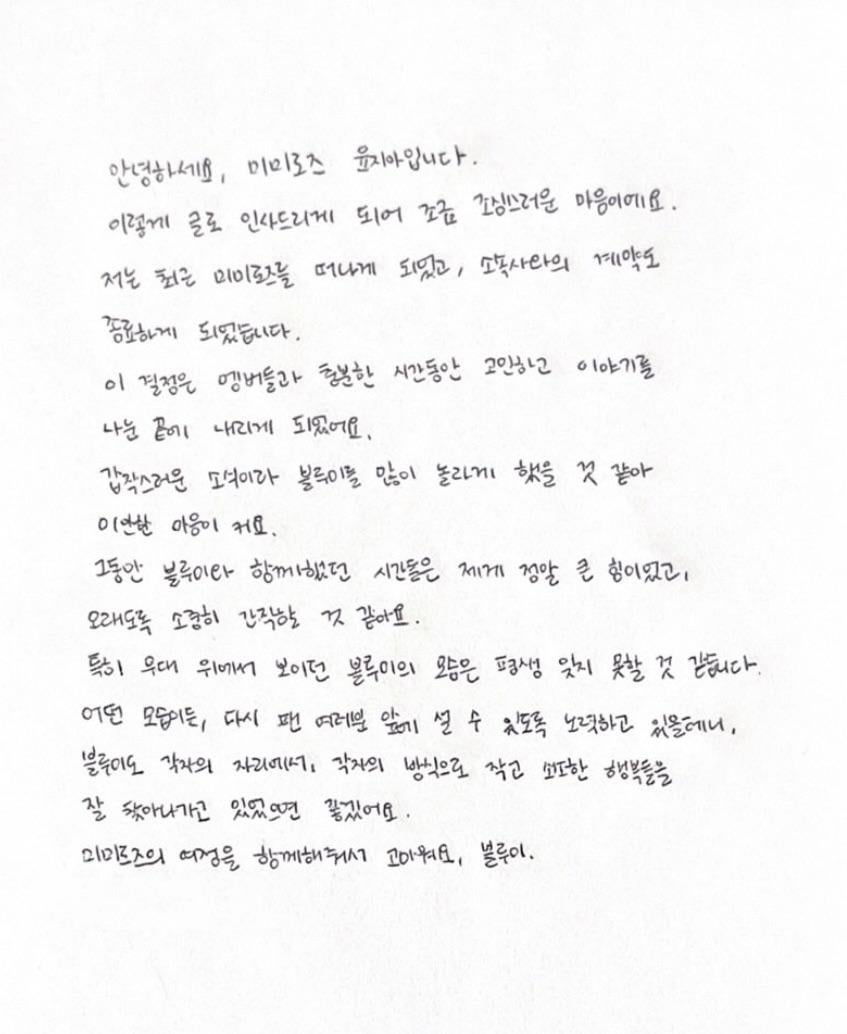 안녕하세요, 미미로즈 윤지아입니다.
이렇게 글로 인사드리게 되어 조금 조심스러운 마음이에요.
저는 최근 미미로즈를 떠나게 되었고, 소속사와의 계약도
종료하게 되었습니다.
이 결정은 멤버들과 충분한 시간동안 고민하고 이야기를
나눈 끝에 내리게 되었어요.
갑작스러운 소식이라 블루미를 많이 놀라게 했을 것 같아
미안한 마음이 커요.
그동안 블루미와 함께했던 시간들은 제게 정말 큰 힘이었고,
오래도록 소중히 간직할 것 같아요.
특히 무대 위에서 보이던 블루미의 모습은 평생 잊지 못할 것 같습니다.
어떤 모습이든, 다시 팬 여러분 앞에 설 수 있도록 노력하고 있을테니,
블루미도 각자의 자리에서, 각자의 방식으로 작고 소도한 행복들을
잘 찾아나가고 있었으면 좋겠어요.
미미로즈의 여정을 함께해줘서 고마워요, 블루미.